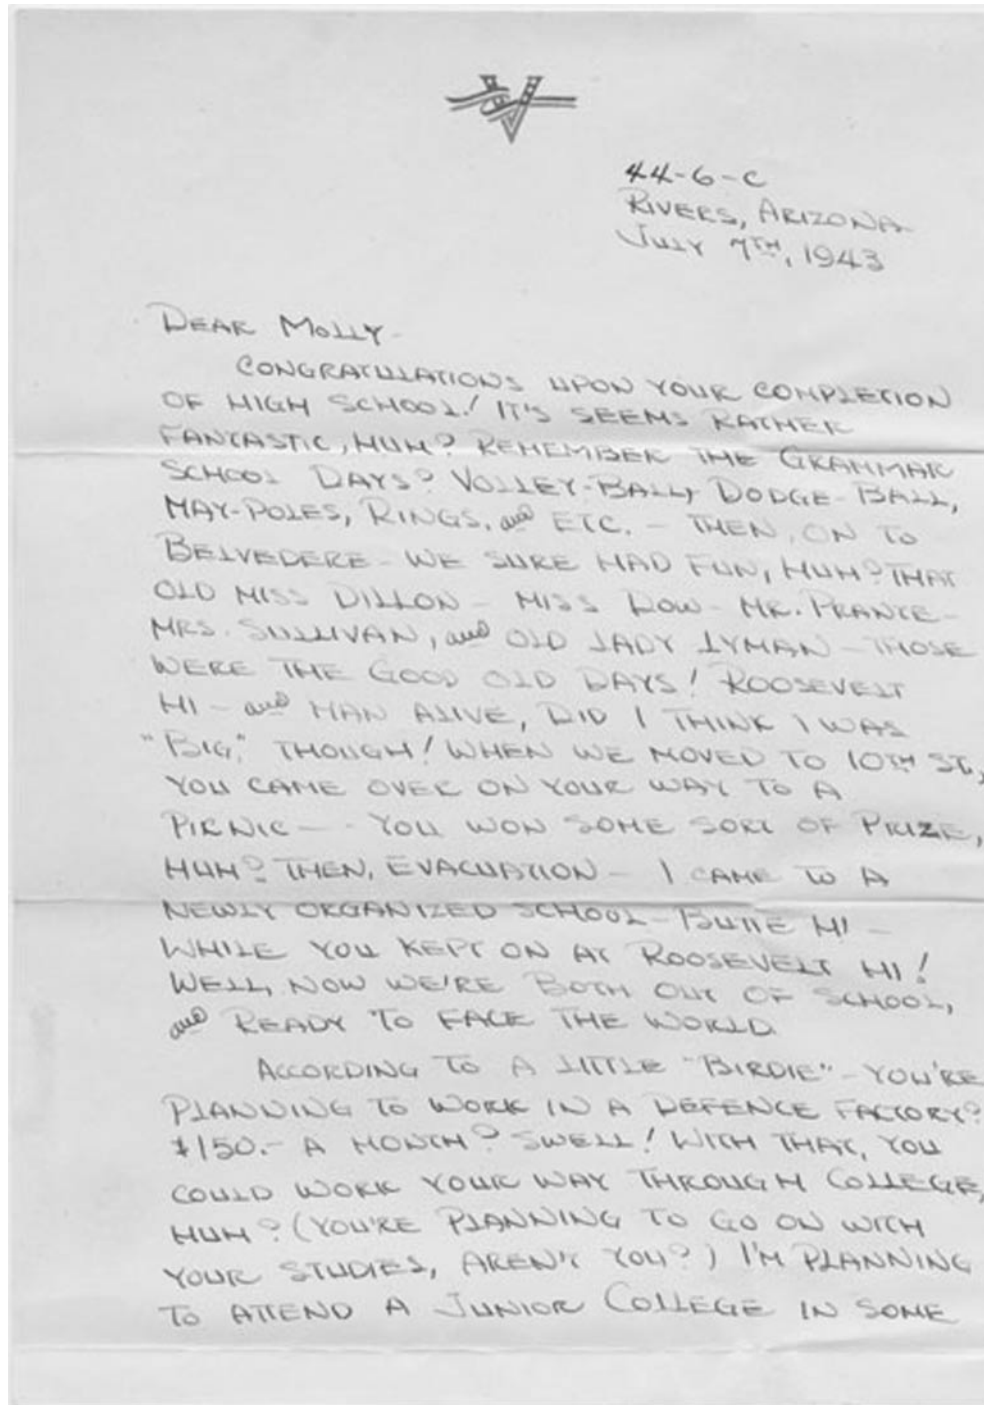 44-6-C
RIVERS, ARIZONA
JULY 7TH, 1943
DEAR MOLLY-
CONGRATULATIONS UPON YOUR COMPLETION
OF HIGH SCHOOL! IT'S SEEMS RATHER
FANTASTIC, HUH? REMEMBER THE GRAMMAR
SCHOOL DAYS? VOLLEY-BALL, DODGE-BALL,
MAY-POLES, RINGS, and ETC. - THEN, ON TO
BELVEDERE - WE SURE HAD FUN, HUH? THAT
OLD MISS DILLON - MISS DOW - MR. PRANTE -
MRS. SULLIVAN, and OLD LADY LYMAN - THOSE
WERE THE GOOD OLD DAYS! ROOSEVELT
HI - and MAN ALIVE, DID I THINK I WAS
"BIG," THOUGH! WHEN WE MOVED TO 10TH ST,
YOU CAME OVER ON YOUR WAY TO A
PICNIC -- YOU WON SOME SORT OF PRIZE,
HUH? THEN, EVACUATION - I CAME TO A
NEWLY ORGANIZED SCHOOL - BUTTE HI -
WHILE YOU KEPT ON AT ROOSEVELT HI!
WELL, NOW WE'RE BOTH OUT OF SCHOOL,
and READY TO FACE THE WORLD.
ACCORDING TO A LITTLE "BIRDIE" - YOU'RE
PLANNING TO WORK IN A DEFENCE FACTORY?
$150.- A MONTH? SWELL! WITH THAT, YOU
COULD WORK YOUR WAY THROUGH COLLEGE,
HUH? (YOU'RE PLANNING TO GO ON WITH
YOUR STUDIES, AREN'T YOU?) I'M PLANNING
TO ATTEND A JUNIOR COLLEGE IN SOME